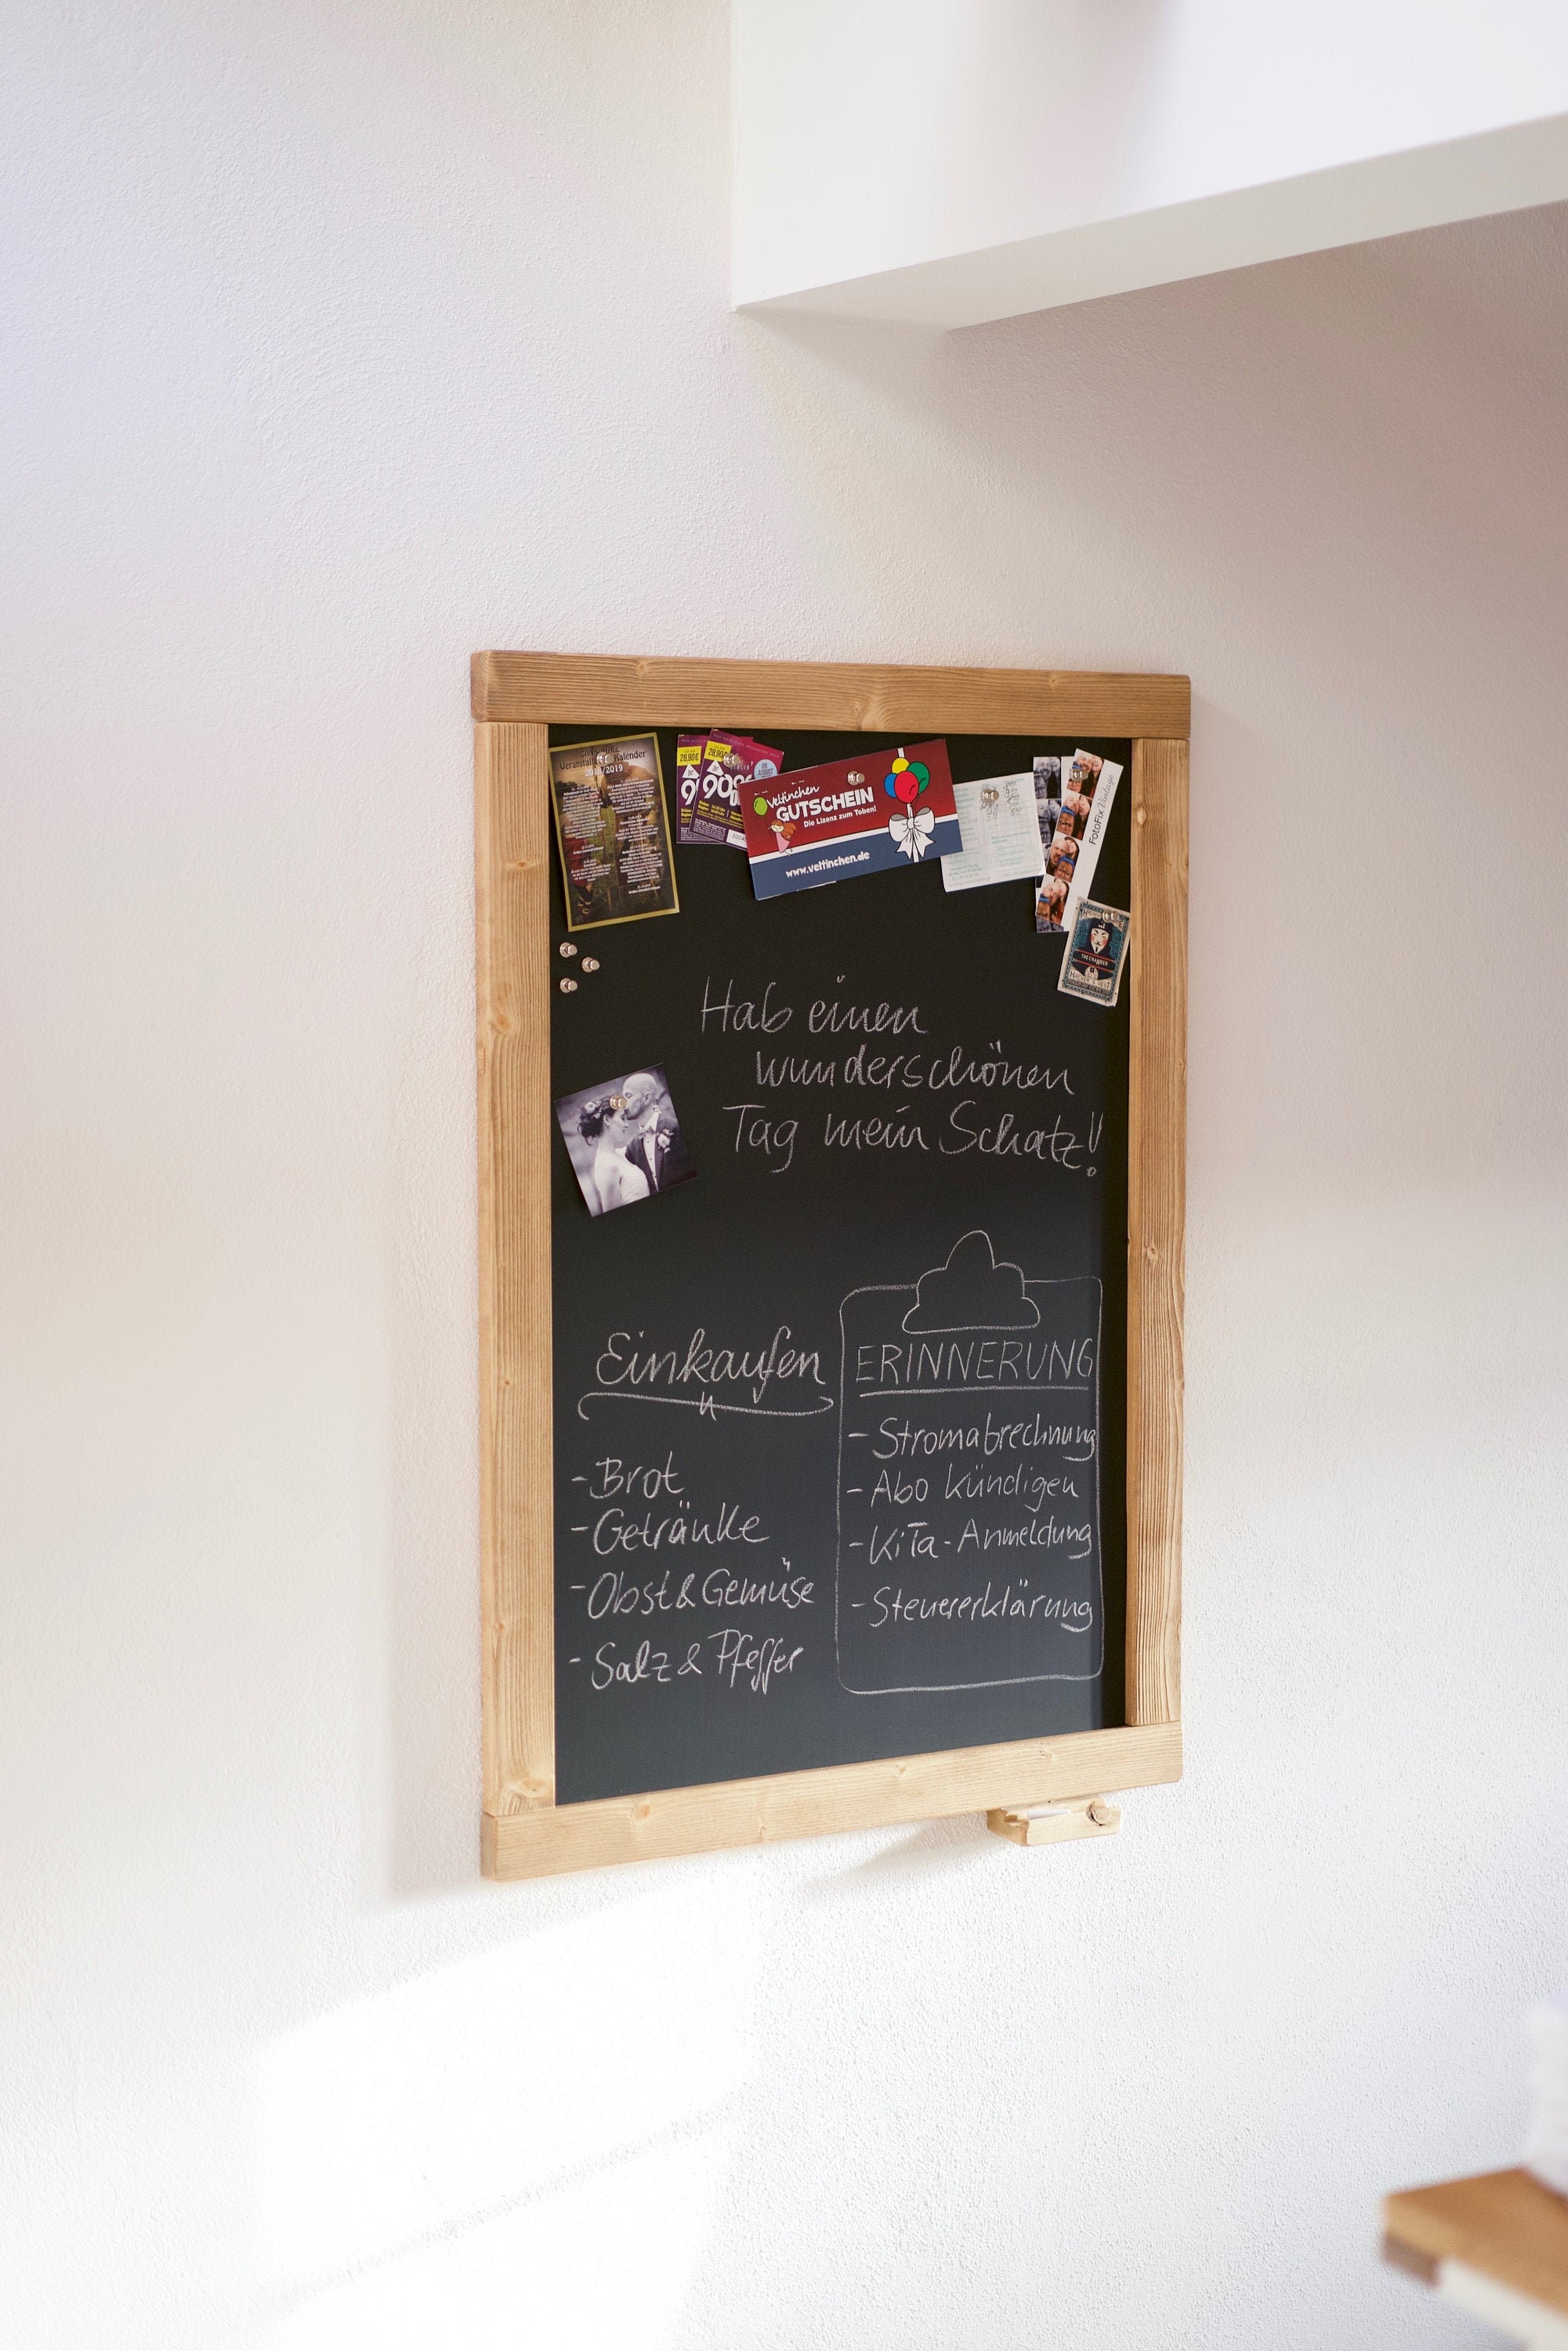 Kalender
2018/2019
28,90€
28,90€
90
Veltinchen
GUTSCHEIN
Die Lizenz zum Toben!
www.veltinchen.de
FotoFix Vintage
THE CHAMBER
Hab einen
wunderschönen
Tag mein Schatz!
Einkaufen
- Brot
- Getränke
- Obst & Gemüse
- Salz & Pfeffer
ERINNERUNG
- Stromabrechnung
- Abo kündigen
- KiTa-Anmeldung
- Steuererklärung